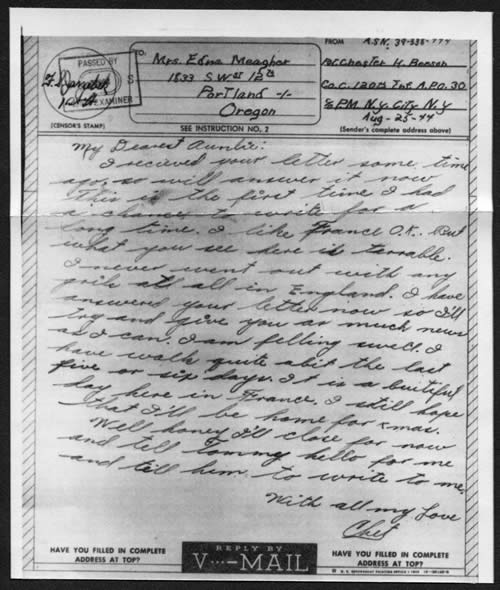 FROM A.S.N. 39-338-
PASSED BY
S
EXAMINER
(CENSOR'S STAMP)
TO:
Mrs. Edna Meagher
1833 S.W. 12th
Portland -1-
Oregon
SEE INSTRUCTION NO. 2
Pfc Chester H. Benson
Co. C. 120th Inf. A.P.O. 30
% P.M. N.Y. City N.Y
Aug-25-44
(Sender's complete address above)
My Dearest Auntie:
I recived your letter some time
ago, so will answer it now
this is the first time I had
a chance to write for a
long time. I like France O.K. But
what you see here is terrable.
I never went out with any
girls at all in England. I have
answered your letter now so I'll
try and give you as much news
as I can. I am felling swell. I
have walk quite abit the last
five or six days. It is a buitiful
day here in France. I still hope
that I'll be home for xmas.
Well honey I'll close for now
and tell Tommy hello for me
and tell him to write to me.
With all my love
Chet
HAVE YOU FILLED IN COMPLETE
ADDRESS AT TOP?
REPLY BY
V···—MAIL
HAVE YOU FILLED IN COMPLETE
ADDRESS AT TOP?